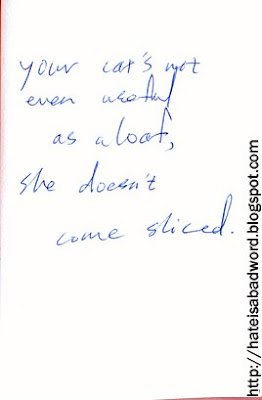 your cat's not
even useful
as a loaf,
she doesn't
come sliced.
http://hateisabadword.blogspot.com